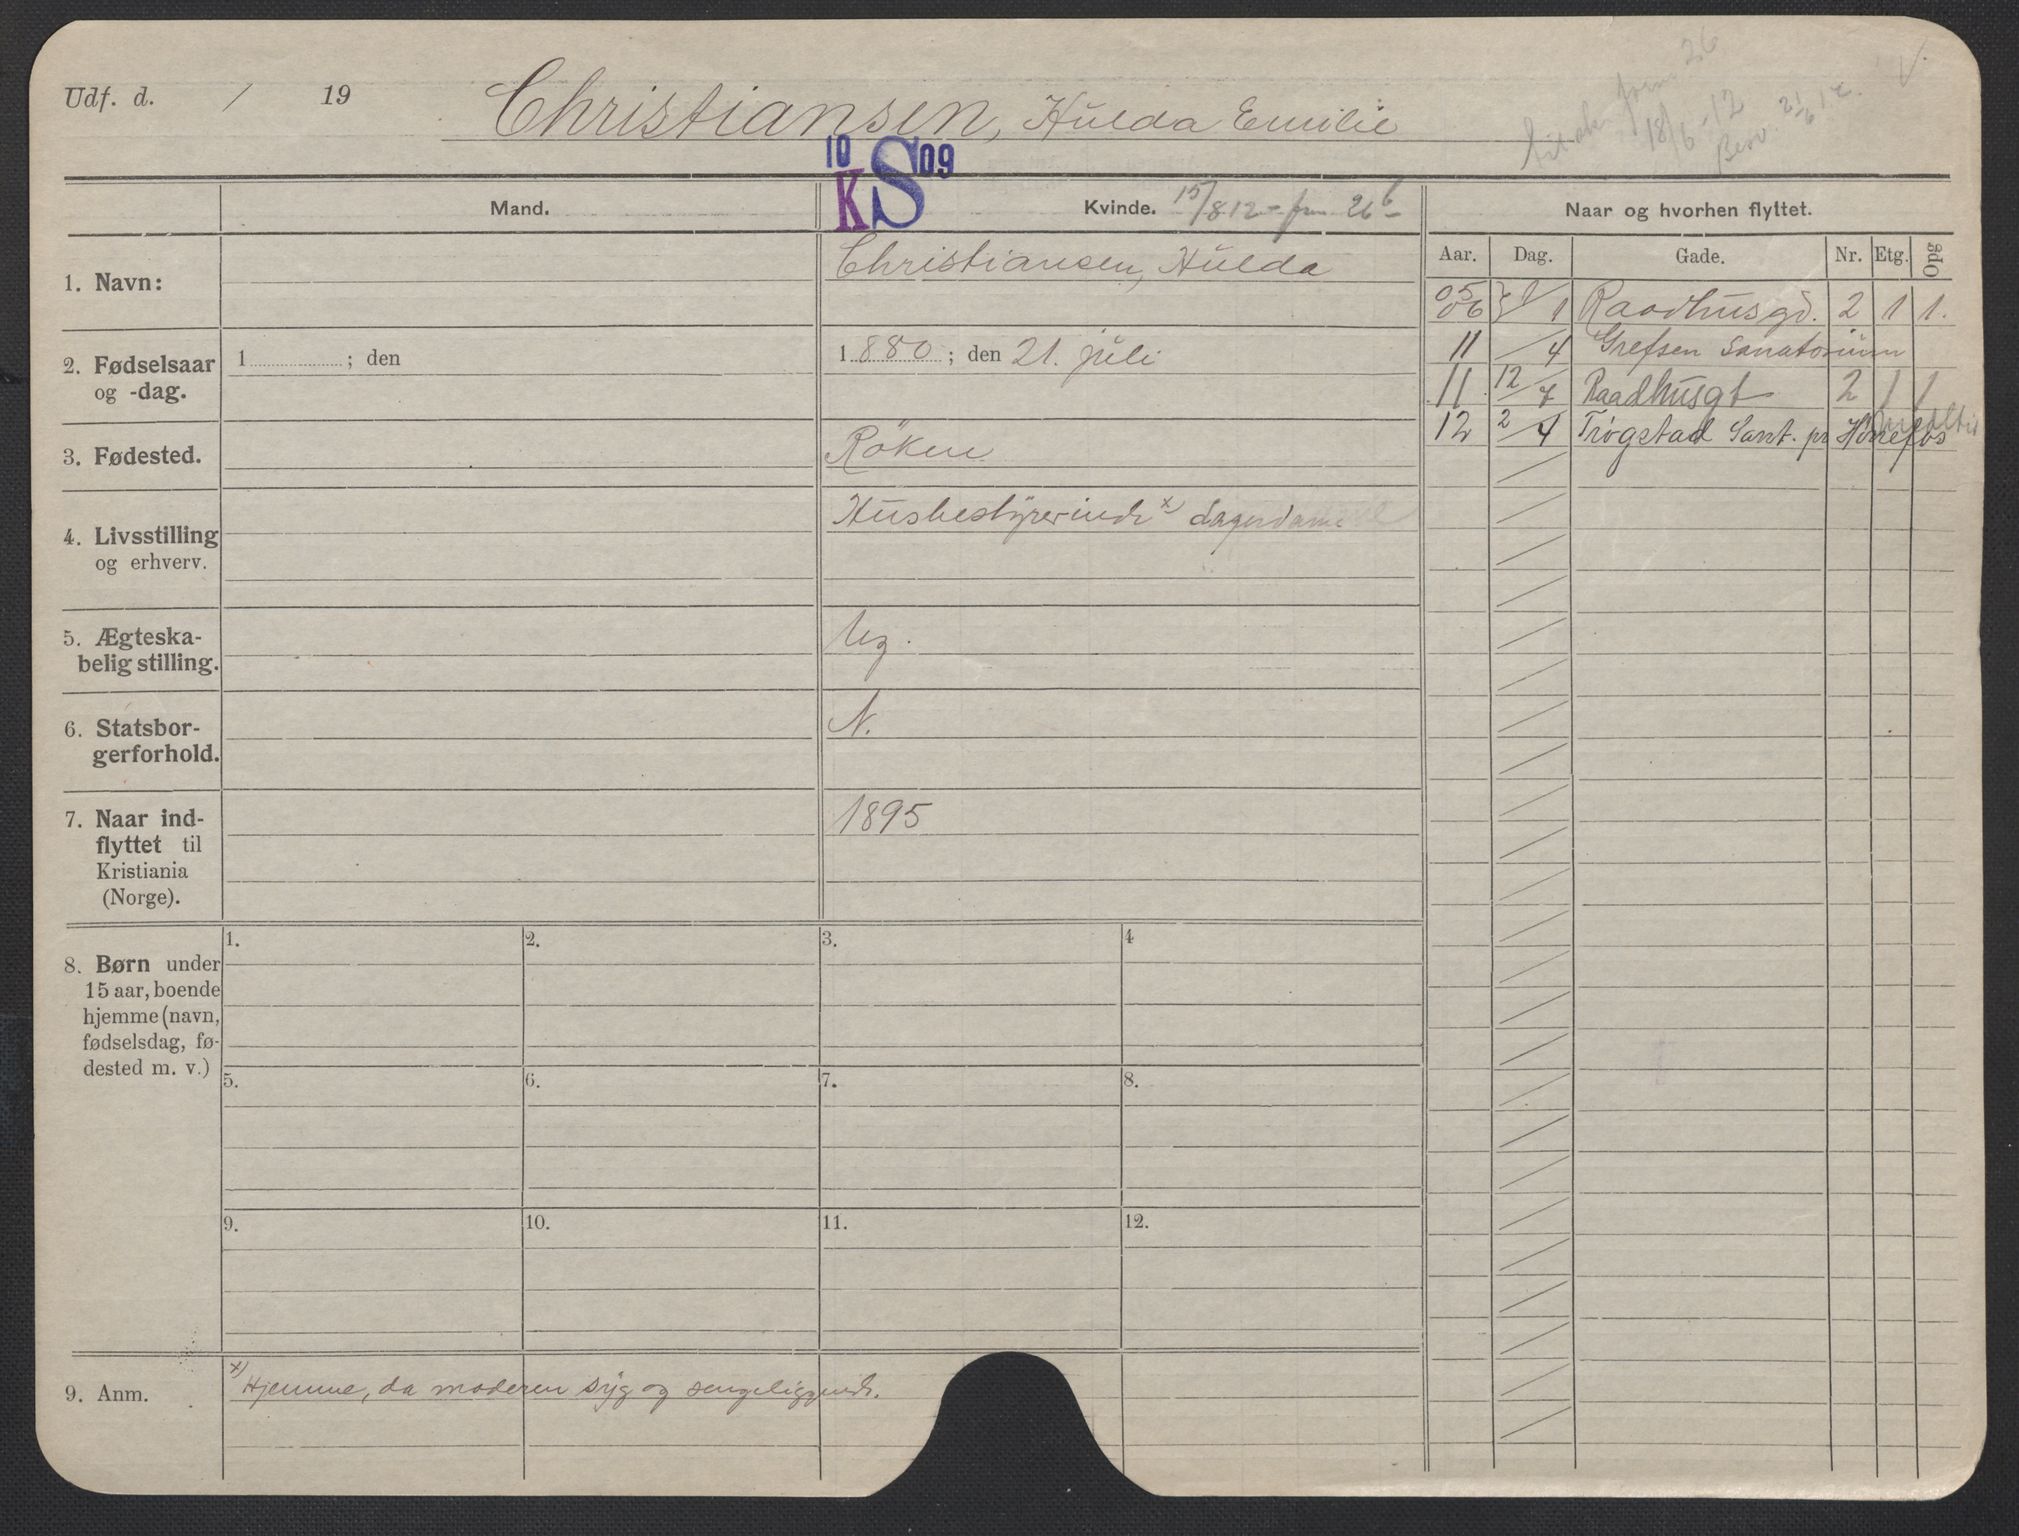 Udf. d. / 19 Christiansen, Hulda Emilie
26
18/6 - 12
Besv. 21/6 12.
V.
10 KS 09
Mand.
Kvinde. 15/8 12 - 26 6
Naar og hvorhen flyttet.
Aar. Dag. Gade. Nr. Etg. Opg
1. Navn:
Christiansen, Hulda
05
06 } 1/1 Raadhusgd. 2 1 1.
11 /4 Grefsen Sanatorium
11 12/7 Raadhusgt 2 1 1
12 2/4 Trøgstad Sant. pr Hønefos
2. Fødselsaar
og -dag.
1 ; den
1 880 ; den 21. juli
3. Fødested.
Røken
4. Livsstilling
og erhverv.
Husbestyrerinde x) Lagerdame
5. Ægteska-
belig stilling.
Ug.
6. Statsbor-
gerforhold.
N.
7. Naar ind-
flyttet til
Kristiania
(Norge).
1895
8. Børn under
15 aar, boende
hjemme (navn,
fødselsdag, fø-
dested m. v.)
1. 2. 3. 4
5. 6. 7. 8.
9. 10. 11. 12.
9. Anm.
x) Hjemme, da moderen syg og sengeliggende.